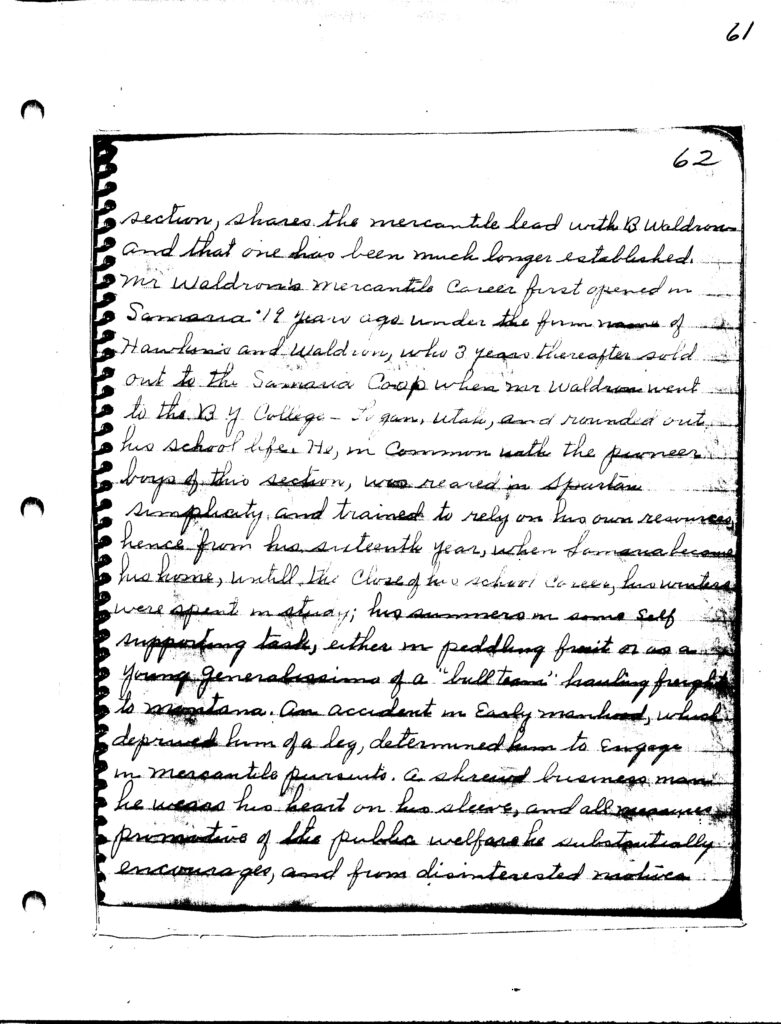 61
62
section, shares the mercantile lead with B Waldron
and that one has been much longer established.
Mr Waldron's Mercantile Career first opened in
Samaria 19 years ago under the firm name of
Hawkins and Waldron, who 3 years thereafter sold
out to the Samaria Coop when Mr Waldron went
to the B Y College - Logan, Utah, and rounded out
his school life. He, in Common with the pioneer
boys of this section, was reared in Spartan
simplicity and trained to rely on his own resources,
hence from his sixteenth year, when Samaria became
his home, untill the Close of his school Career, his winters
were spent in study; his summers in some Self
supporting task, either in peddling fruit or as a
young generalissimo of a "bull team" hauling freight
to Montana. An accident in Early manhood, which
deprived him of a leg, determined him to Engage
in Mercantile pursuits. A shrewd business man
he wears his heart on his sleeve, and all measures
promotive of the public welfare he substantially
encourages, and from disinterested motives